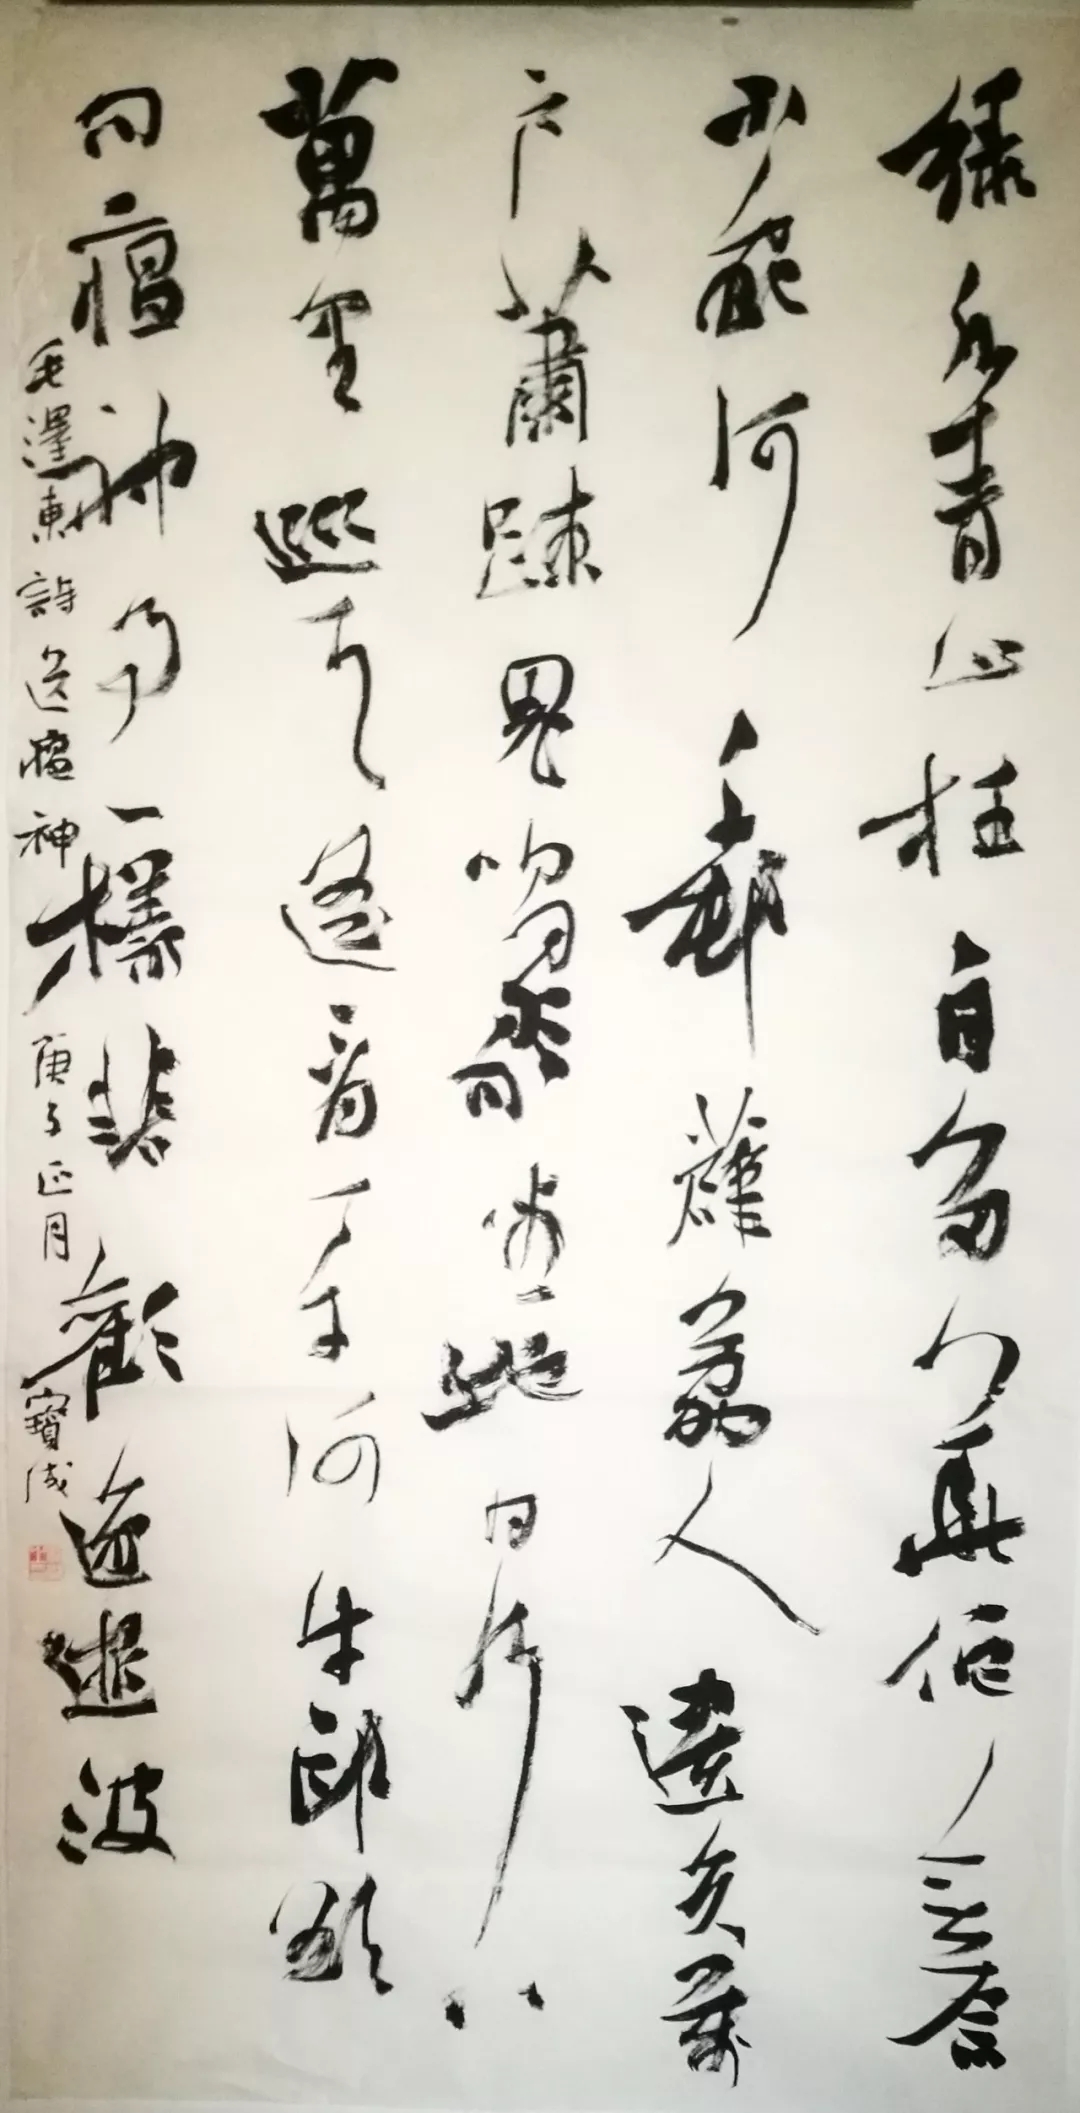 綠水青山枉自多華佗無奈
小蟲何千邨薜荔人遺矢萬
戶蕭踈鬼唱歌坐地日行八
萬里巡天遙看一千河牛郎欲
問瘟神事一樣悲歡逐逝波
毛澤東詩送瘟神 庚子正月 寶成